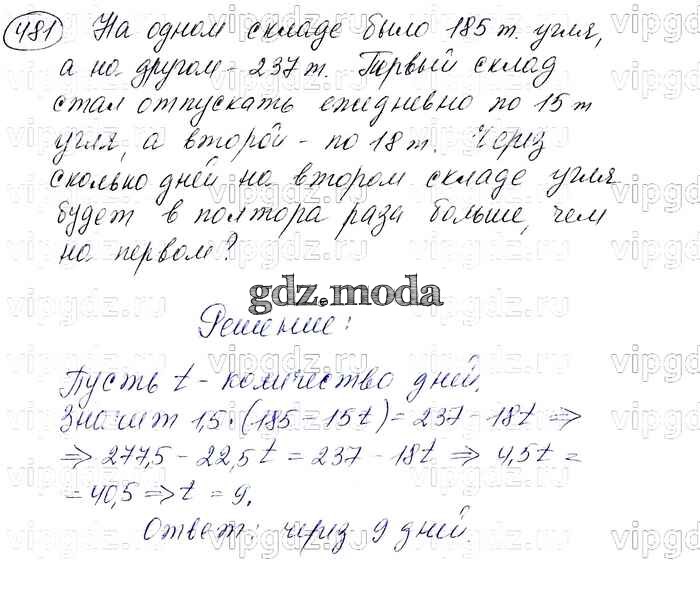 481 На одном складе было 185 т. угля,
а на другом - 237 т. Первый склад
стал отпускать ежедневно по 15 т
угля, а второй - по 18 т. Через
сколько дней на втором складе угля
будет в полтора раза больше, чем
на первом?
gdz.moda
Решение:
Пусть t - количество дней.
Значит 1,5·(185 - 15t) = 237 - 18t ⇒
⇒ 277,5 - 22,5t = 237 - 18t ⇒ 4,5t =
= 40,5 ⇒ t = 9.
Ответ: через 9 дней.